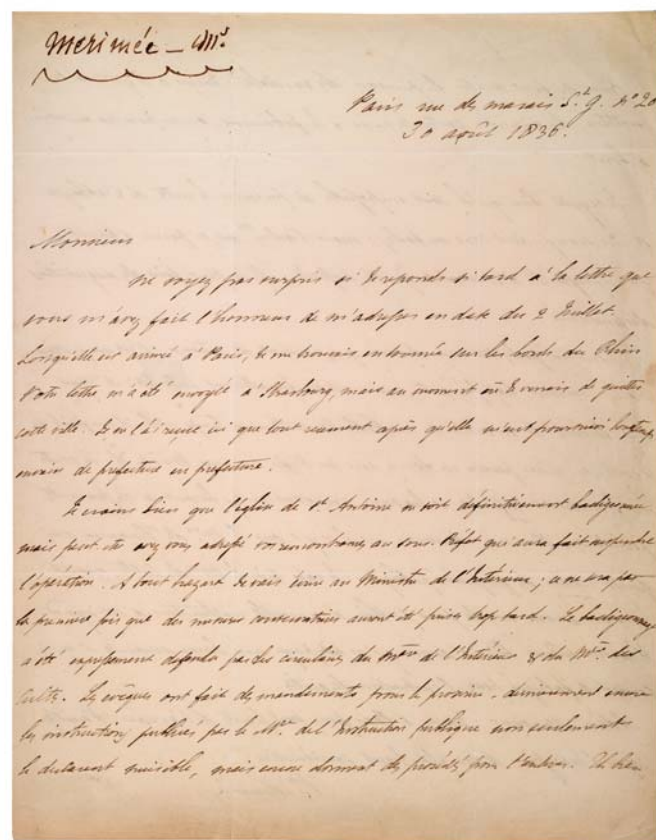 Merimée - Mr.
Paris rue des marais St. g. no 20
30 août 1836.
Monsieur
ne soyez pas surpris si je reponds si tard à la lettre que
vous m'avez fait l'honneur de m'adresser en date du 2 Juillet.
Lorsqu'elle est arrivée à Paris, je me trouvais en tournée sur les bords du Rhin
Votre lettre m'a été envoyée à Strasbourg, mais au moment où je venais de quitter
cette ville. Je ne l'ai reçue ici que tout recemment après qu'elle m'eut poursuivi longtemps
envain de prefecture en prefecture.
Je crains bien que l'église de St. Antoine ne soit définitivement badigeonnée
mais peut etre avez vous adressé vos remontrances au sous-Préfet qui aura fait suspendre
l'opération. A tout hazard je vais écrire au Ministre de l'Intérieur; ce ne sera pas
la premiere fois que des mesures conservatrices auront été prises trop tard. Le badigeonnage
a été expressement defendu par des circulaires du Mtre de l'Intérieur & du Mtre des
Cultes. Les evêques ont fait des mandements pour le proscrire. dernierement encore
les instructions publiées par le Mtre de l'Instruction publique non seulement
le declarent nuisible, mais encore donnent des procédés pour l'enlever. Eh bien